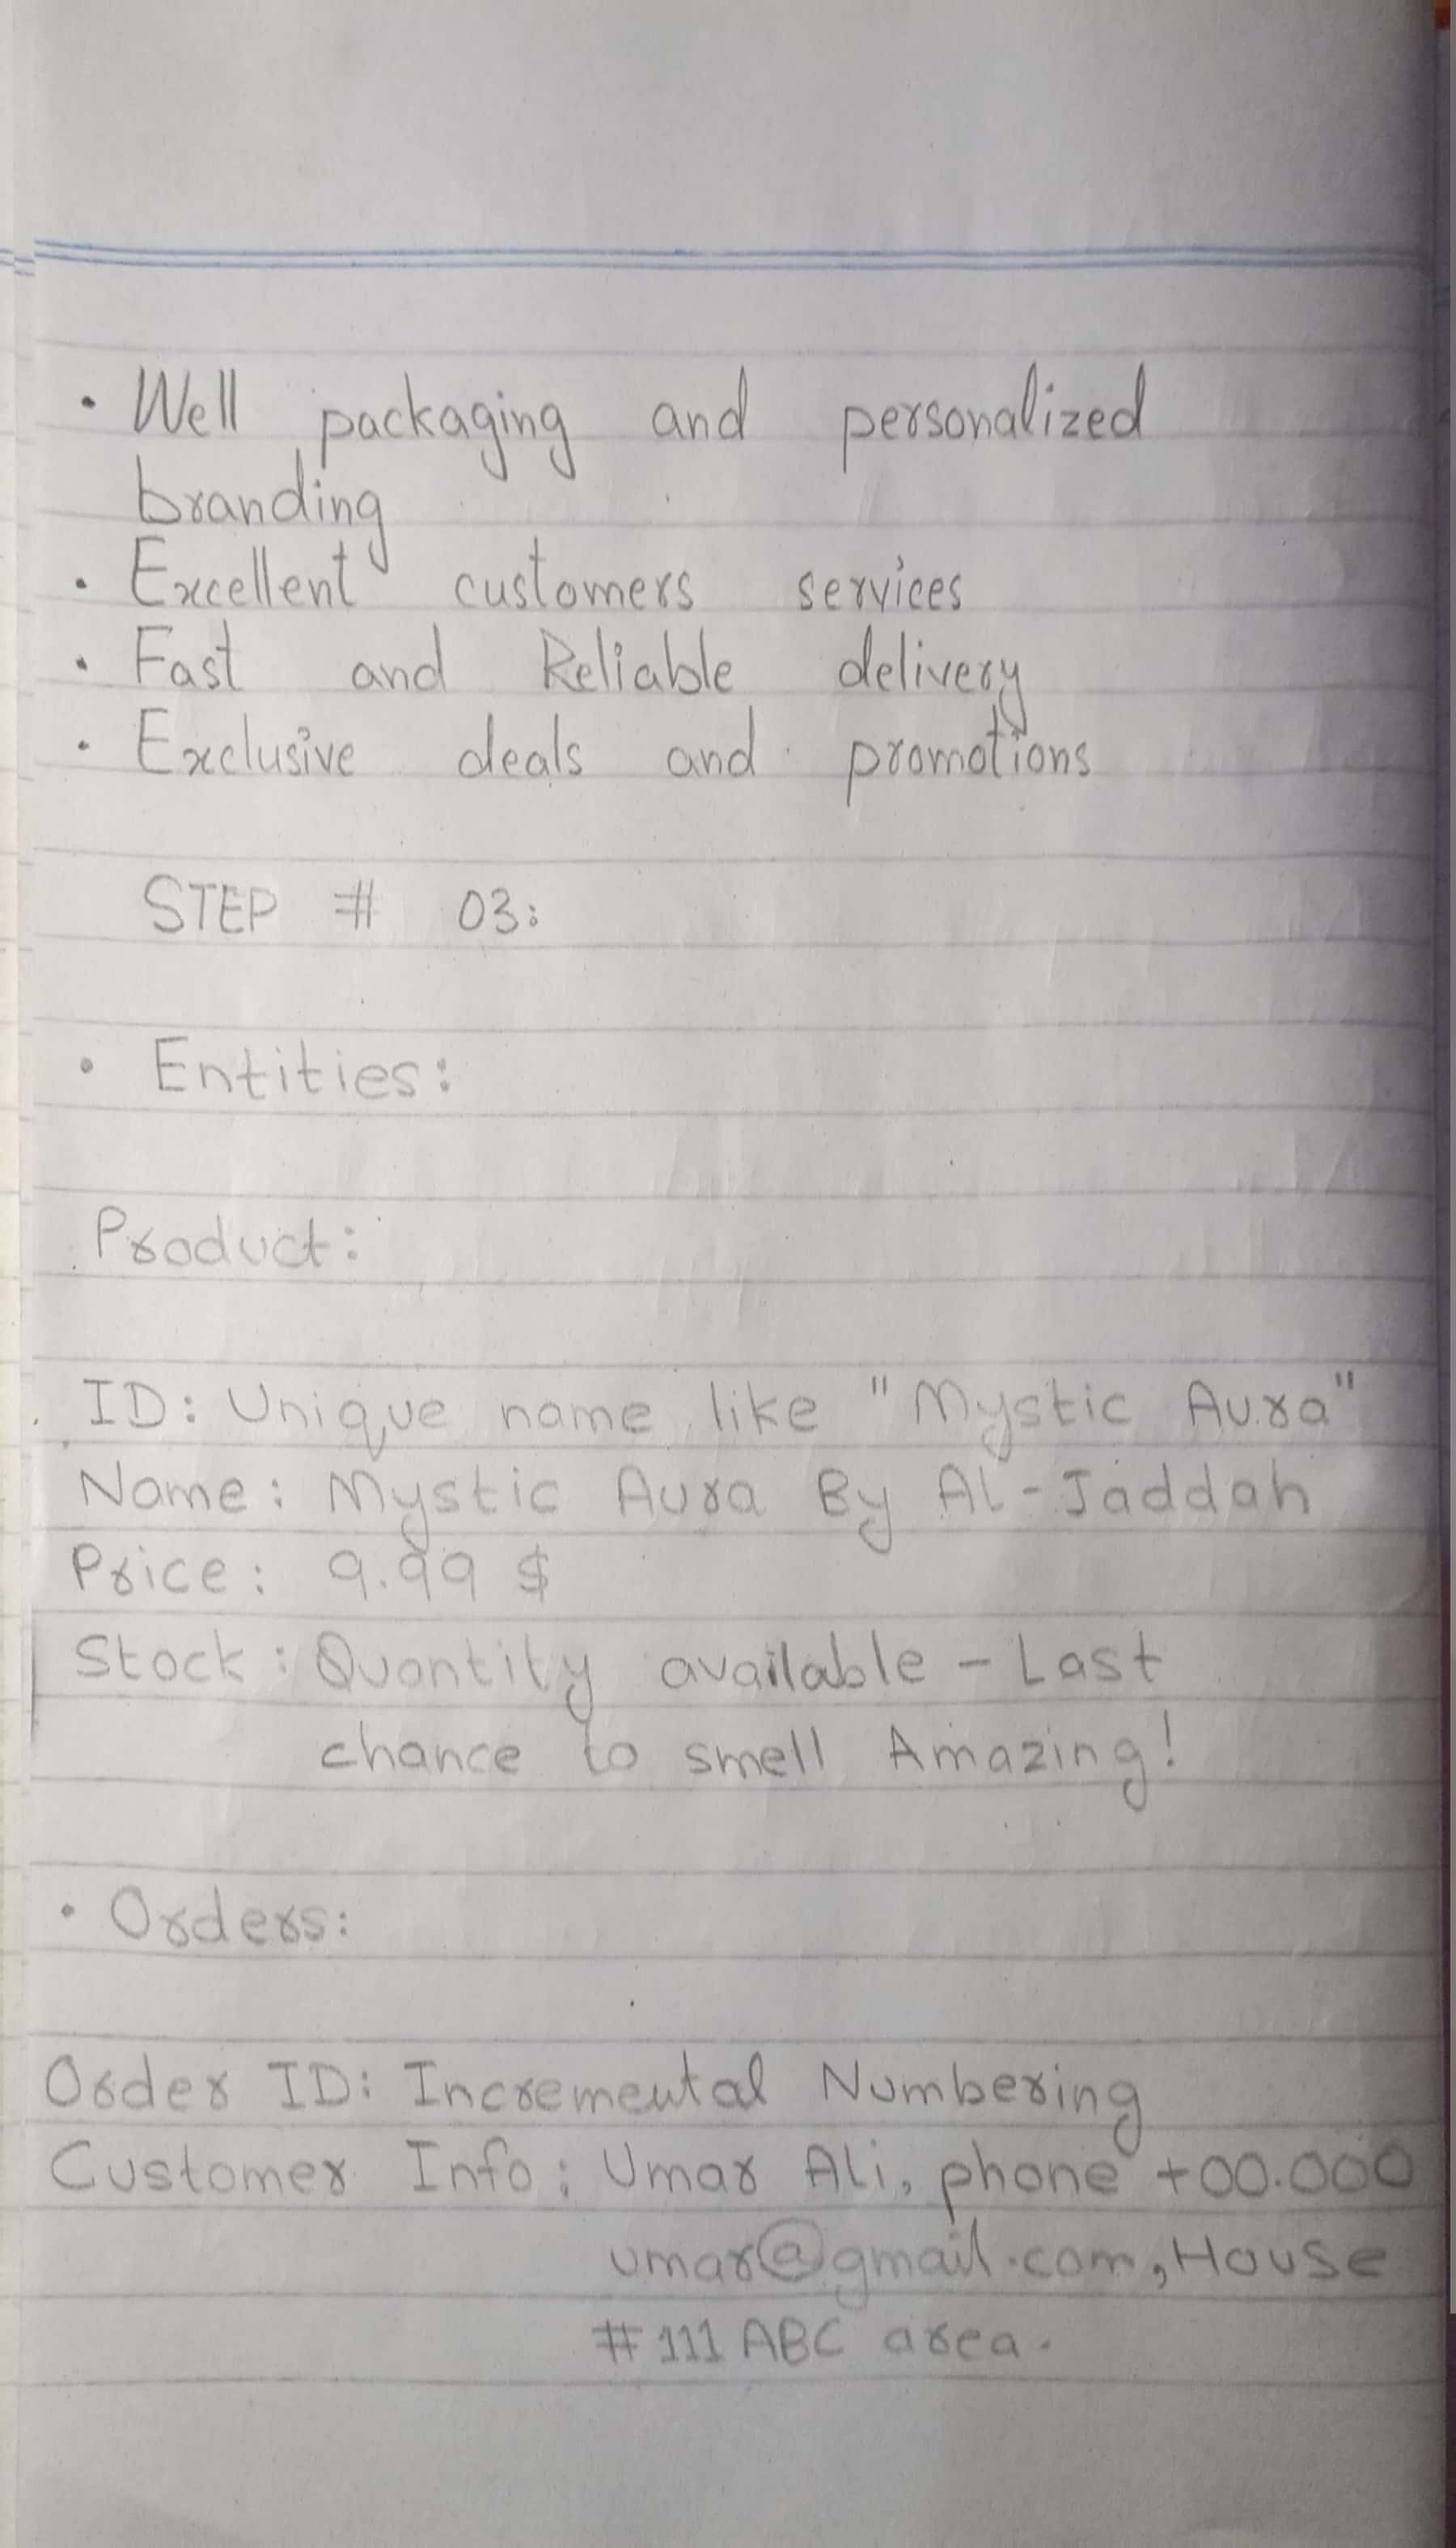 • Well packaging and personalized
branding
• Excellent customers services
• Fast and Reliable delivery
• Exclusive deals and promotions
STEP # 03:
• Entities:
Product:
ID: Unique name like "Mystic Aura"
Name: Mystic Aura By Al-Jaddah
Price: 9.99 $
Stock: Quantity available - Last
chance to smell Amazing!
• Orders:
Order ID: Incremental Numbering
Customer Info: Umar Ali, phone +00.000
umar@gmail.com, House
#111 ABC area.